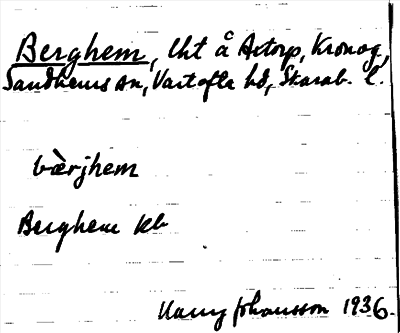 Berghem, lht å Artorp, Kronog,
Sandhems sn, Vartofta hd, Skarab. l.
bàrjhem
Berghem kb
Harry Johansson 1936.